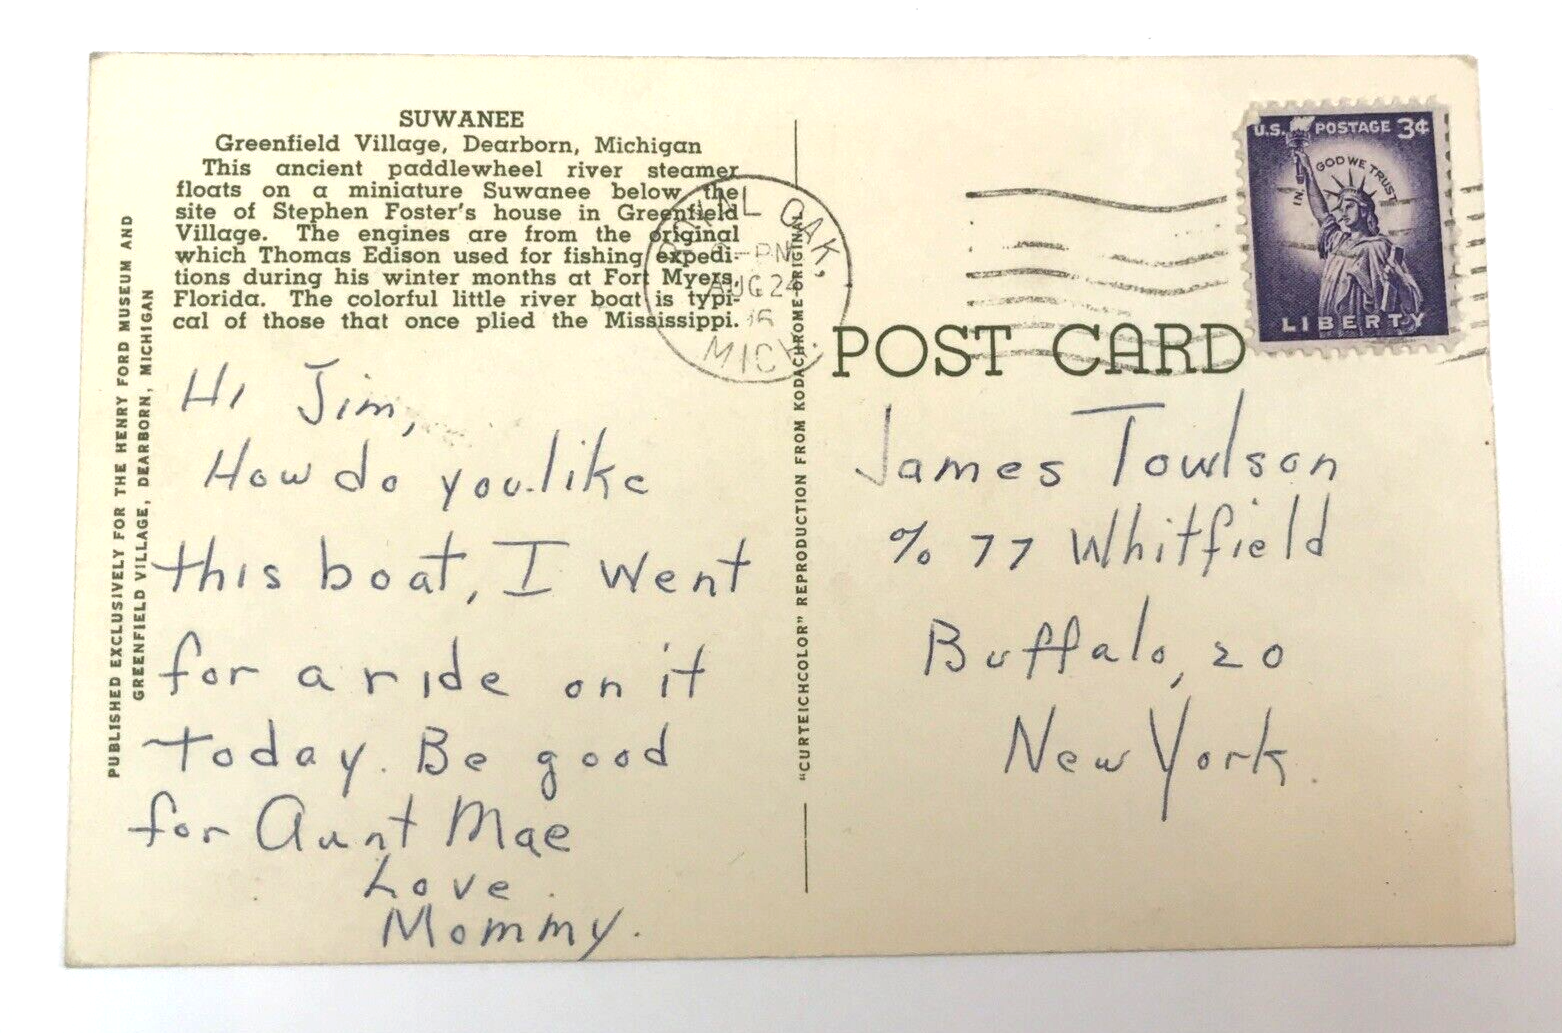 SUWANEE
Greenfield Village, Dearborn, Michigan
This ancient paddlewheel river steamer
floats on a miniature Suwanee below the
site of Stephen Foster's house in Greenfield
Village. The engines are from the original
which Thomas Edison used for fishing expedi-
tions during his winter months at Fort Myers,
Florida. The colorful little river boat is typi-
cal of those that once plied the Mississippi.
PUBLISHED EXCLUSIVELY FOR THE HENRY FORD MUSEUM AND
GREENFIELD VILLAGE, DEARBORN, MICHIGAN
Hi Jim,
How do you like
this boat, I went
for a ride on it
today. Be good
for Aunt Mae
Love.
Mommy.
"CURTEICHCOLOR" REPRODUCTION FROM KODACHROME ORIGINAL
OAK,
PM
AUG 24
MICH.
U.S. POSTAGE 3¢
IN GOD WE TRUST
LIBERTY
POST CARD
James Towlson
% 77 Whitfield
Buffalo, 20
New York.